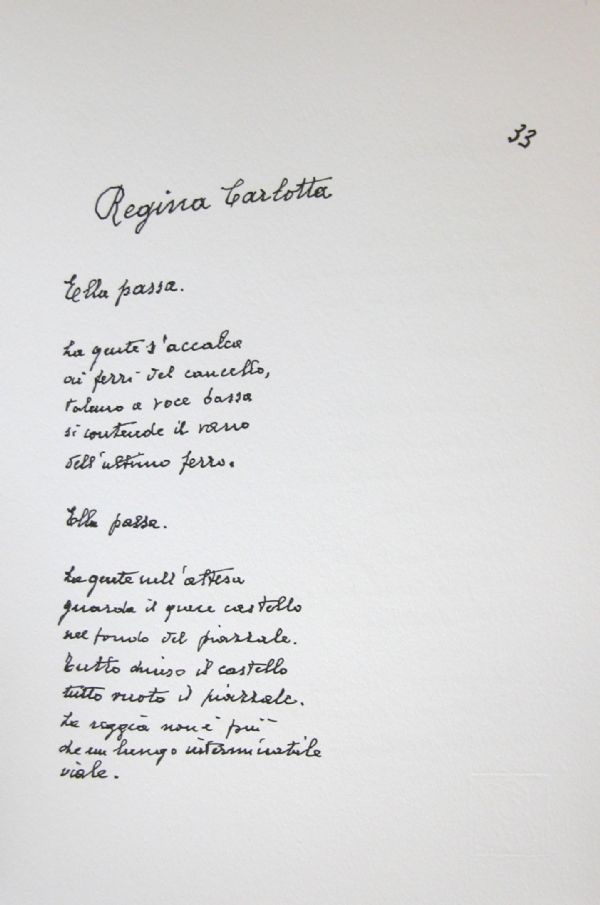 33
Regina Carlotta
Ella passa.
La gente s'accalca
ai ferri del cancello,
taluno a voce bassa
si contende il vano
dell'ultimo ferro.
Ella passa.
La gente nell'attesa
guarda il grave castello
nel fondo del piazzale.
Tutto chiuso il castello
tutto vuoto il piazzale.
La reggia non è più
che un lungo interminabile
viale.